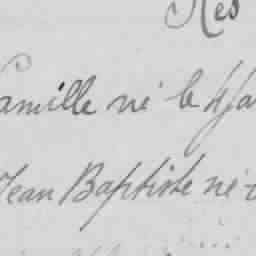 Res
Camille né le 4 Ja
Jean Baptiste né